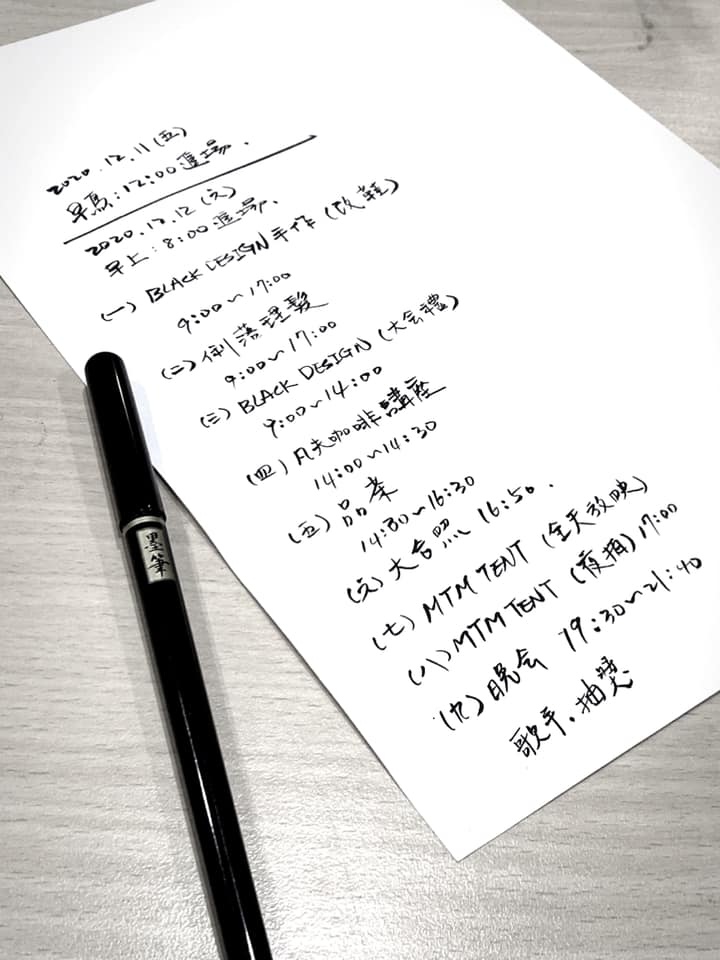 2020.12.11(五)
早鳥:12:00進場.
2020.12.12(六)
早上:8:00進場.
(一) BLACK DESIGN 手作(改鞋)
9:00~17:00
(二) 俐落理髮
9:00~17:00
(三) BLACK DESIGN (大会禮)
9:00~14:00
(四) 凡夫咖啡講座
14:00~14:30
(五) 品茶
14:30~16:30
(六) 大合照 16:50.
(七) MTM TENT (全天放映)
(八) MTM TENT (夜拍) 17:00
(九) 晚会 19:30~21:40
歌手.抽獎
墨筆